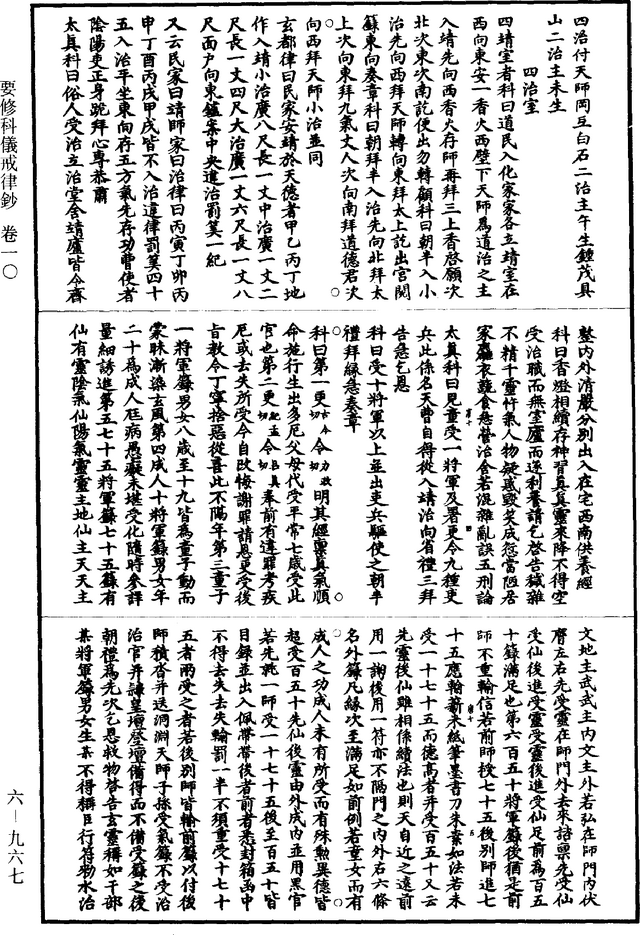 四治付天師岡亙白石二治主午生鍾茂具
山二治主未生
四治室
四靖室者科曰道民入化家家各立靖室在
西向東安一香火西壁下天師為道治之主
入靖先向西香火存師再拜三上香啓願次
北次東次南訖便出勿轉顧科曰朝半入小
治先向西拜天師轉向東拜太上訖出宮閣
籙東向奏章科曰朝拜半入治先向北拜太
上次向東拜九氣丈人次向南拜道德君次
向西拜天師小治並同
玄都律曰民家安靖於天德者甲乙丙丁地
作入靖小治廣八尺長一丈中治廣一丈二
尺長一丈四尺大治廣一丈六尺長一丈八
尺面戶向東鑪案中央違治罰筭一紀
又云民家曰靖師家曰治律曰丙寅丁卯丙
申丁酉丙戌甲戌皆不入治違律罰筭四十
五入治平坐東向存五方氣先存功曹使者
陰陽吏正身跪拜心專恭肅
太真科曰俗人受治立治堂舍靖廬皆令齋
整內外清嚴分別出入在宅西南供養經
科曰香燈相續存神習真真靈來降不得空
受治職而無室廬而遂利養請乞啓告穢雜
不精千靈忤氣人物疑惑毀笑成愆當陋居
家羸衣蔬食慈營治舍若混雜亂誤五刑論
太真科曰兒童受一將軍及署更令九種吏
兵此係名天曹自得從入靖治向省禮三拜
告愆乞恩
科曰受十將軍以上並出吏兵驅使之朝半
禮拜緣急奏章
科曰第一更令明其經稟真氣順
命施行生出多厄父母代受平常七歲受此
官也第二更令奉前有違罪考疾
厄或去失所受今自改悔謝罪請恩更受後
旨教令丁寧捨惡從善此不隔年第三童子
一將軍籙男女八歲至十九皆為童子動而
蒙昧漸染玄風第四成人十將軍籙男女年
二十為成人尫病愚癡未堪受化隨時參詳
量細誘進第五七十五將軍籙七十五籙有
仙有靈陰氣仙陽氣靈靈主地仙主天天主
文地主武武主內文主外若弘在師門內伏
膺左右先受靈在師門外去來諮稟先受仙
受仙後進受靈受靈後進受仙足前為百五
十籙滿足也第六百五十將軍籙後猶是前
師不重輸信若前師授七十五後別師進七
十五應輸薪米紙筆墨書刀朱素如法若未
受一十七十五而德高者并受百五十又云
先靈後仙雖相係續法也則天自近之遠前
用一詗後用一符亦不隔門之內外右六條
名外籙凡緣次至滿足如前例若童女而有
成人之功成人未有所受而有殊勳異德皆
超受百五十先仙後靈由外成內並用黑官
若先詵一師受一十七十五後至百五十皆
目錄並出入佩帶帶後者前者悉封箱函中
不得去失去失輸罰一半不須重受十七十
五者兩受之者若後別師皆輸前籙以付後
師積沓并送洞淵天師子孫受氣籙不受治
治官并謙皇壇登壇備得而不備受籙之後
朝禮為先次乞恩救物啓告玄靈稱如干部
某將軍籙男女生某不得稱臣行符勑水治
要修科儀戒律鈔　卷一〇
六－九六七